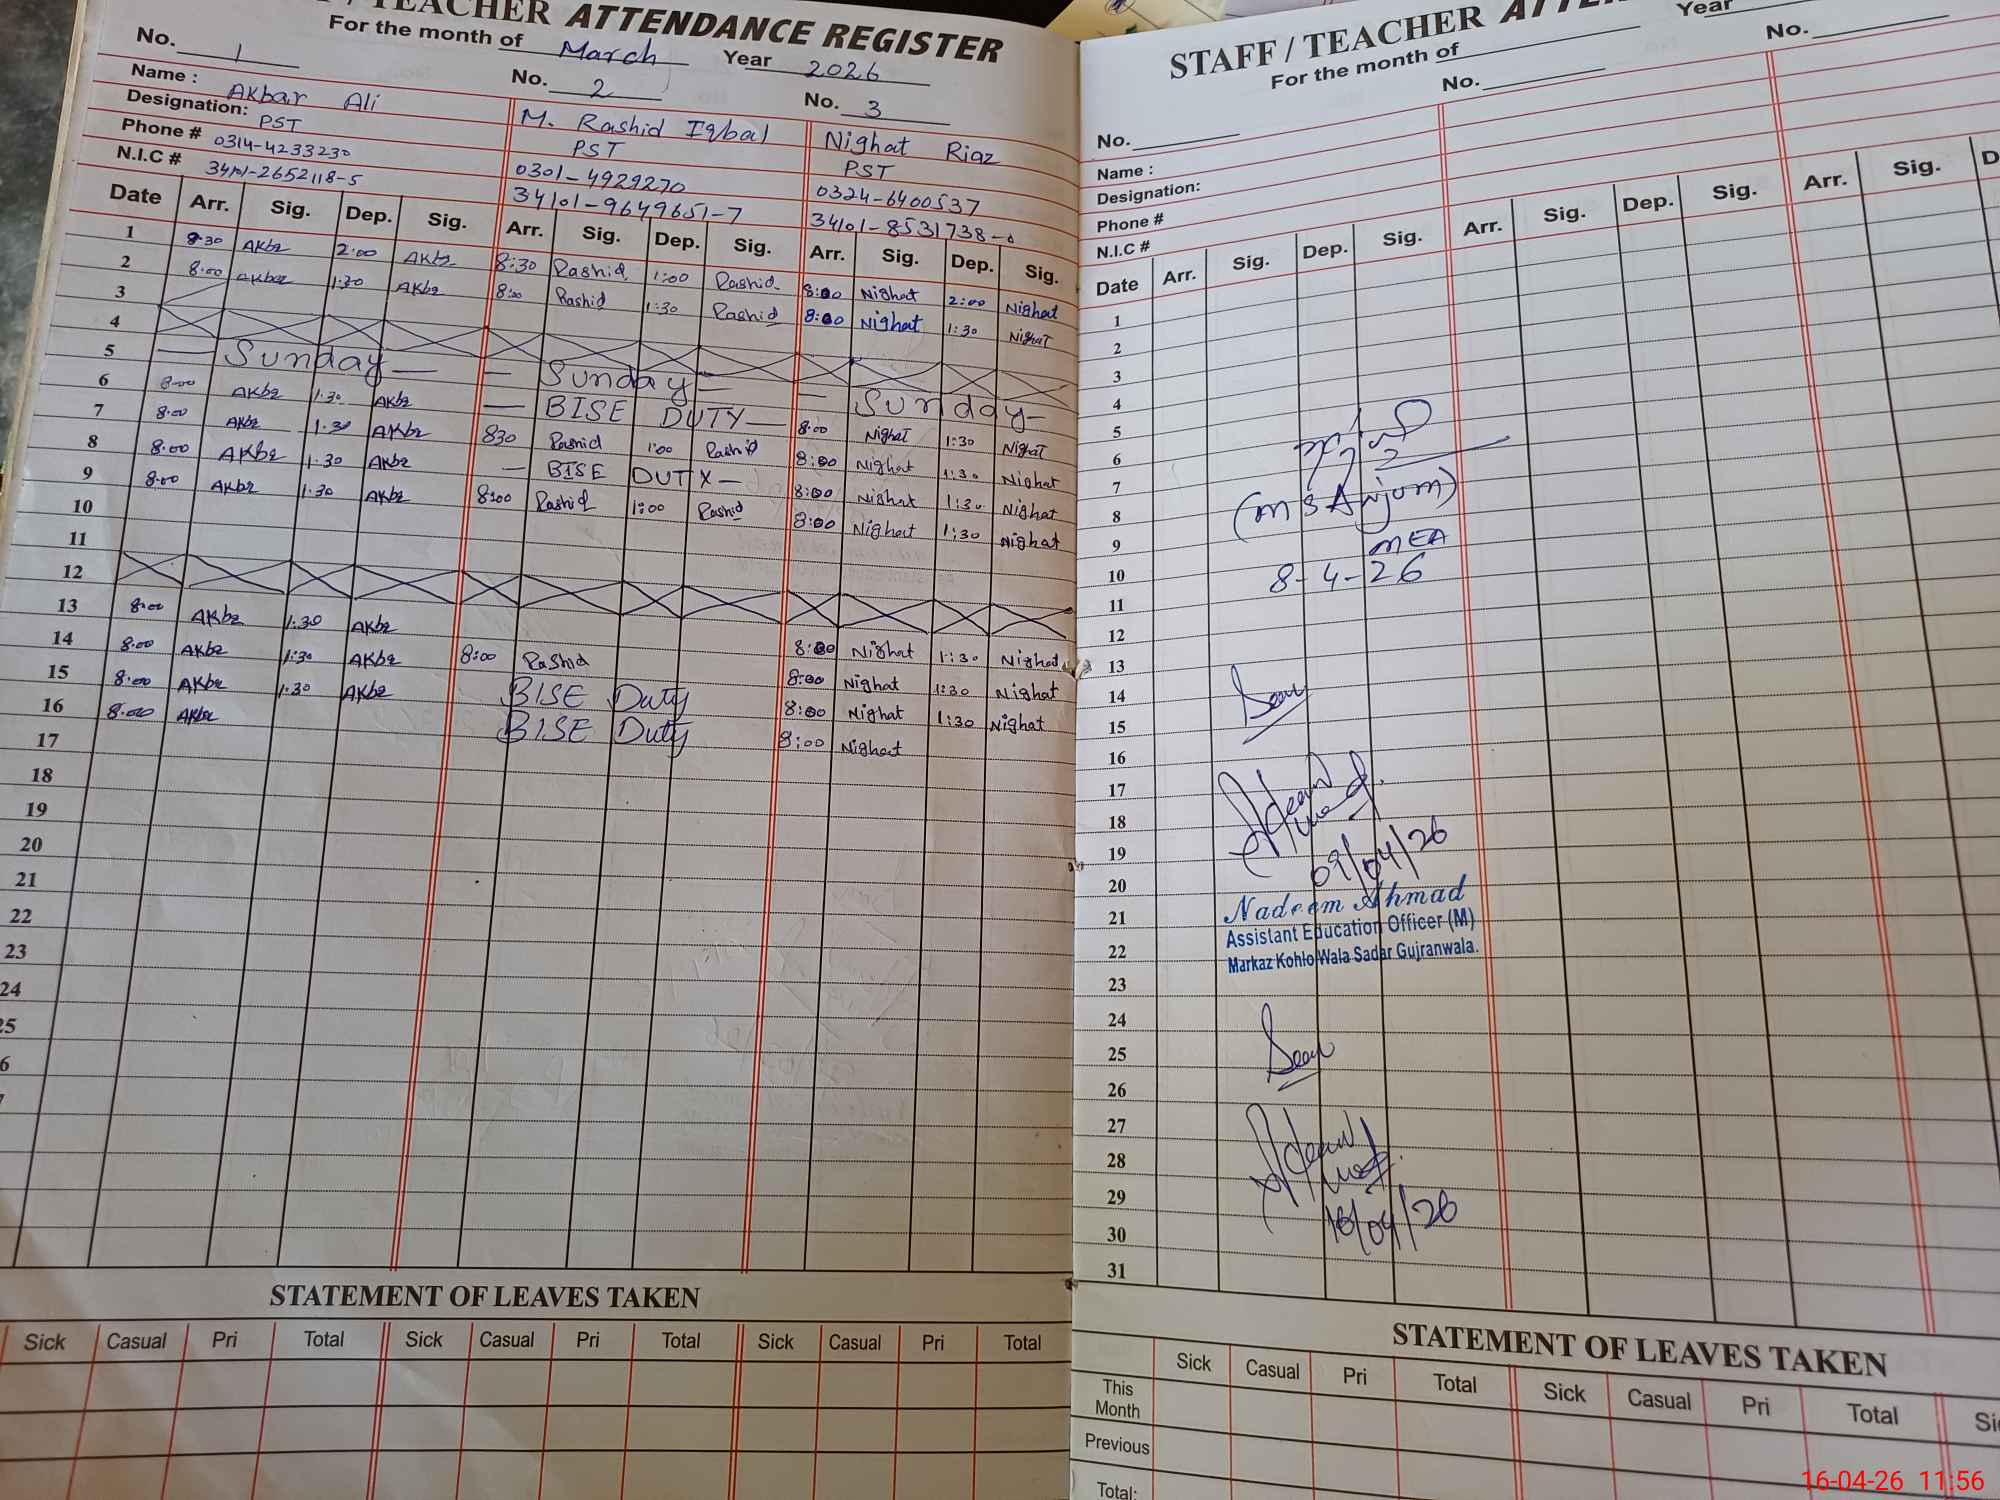 / TEACHER ATTENDANCE REGISTER
For the month of March Year 2026
No. 1 No. 2 No. 3
Name : Akbar Ali M. Rashid Iqbal Nighat Riaz
Designation: PST PST PST
Phone # 0314-4233230 0301-4929270 0324-6400537
N.I.C # 34101-2652118-5 34101-9649651-7 34101-8531738-0
Date Arr. Sig. Dep. Sig. Arr. Sig. Dep. Sig. Arr. Sig. Dep. Sig.
1 8:30 AKbr 2:00 AKbr 8:30 Rashid 1:00 Rashid 8:00 Nighat 2:00 Nighat
2 8:00 AKbr 1:30 AKbr 8:00 Rashid 1:30 Rashid 8:00 Nighat 1:30 Nighat
3
4
5 — Sunday — — Sunday — — Sunday —
6 8:00 AKbr 1:30 AKbr — BISE DUTY — 8:00 Nighat 1:30 Nighat
7 8:00 AKbr 1:30 AKbr 830 Rashid 1:00 Rashid 8:00 Nighat 1:30 Nighat
8 8:00 AKbr 1:30 AKbr — BISE DUTY — 8:00 Nighat 1:30 Nighat
9 8:00 AKbr 1:30 AKbr 8:00 Rashid 1:00 Rashid 8:00 Nighat 1:30 Nighat
10
11
12
13 8:00 AKbr 1:30 AKbr 8:00 Nighat 1:30 Nighat
14 8:00 AKbr 1:30 AKbr 8:00 Rashid 8:00 Nighat 1:30 Nighat
15 8:00 AKbr 1:30 AKbr BISE Duty 8:00 Nighat 1:30 Nighat
16 8:00 AKbr BISE Duty 8:00 Nighat
17
18
19
20
21
22
23
24
25
6
STATEMENT OF LEAVES TAKEN
Sick Casual Pri Total Sick Casual Pri Total Sick Casual Pri Total
STAFF / TEACHER
For the month of Year
No. No. No.
Name :
Designation:
Phone #
N.I.C #
Date Arr. Sig. Dep. Sig. Arr. Sig. Dep. Sig. Arr. Sig.
1
2
3
4
5
6
7
8 (M S Anjum)
9 MEA
10 8-4-26
11
12
13
14
15
16
17
18
19 09/04/26
20
21 Nadeem Ahmad
22 Assistant Education Officer (M)
Markaz Kohlo Wala Sadar Gujranwala.
23
24
25
26
27
28
29 16/04/26
30
31
STATEMENT OF LEAVES TAKEN
Sick Casual Pri Total Sick Casual Pri Total
This Month
Previous
Total:
16-04-26 11:56